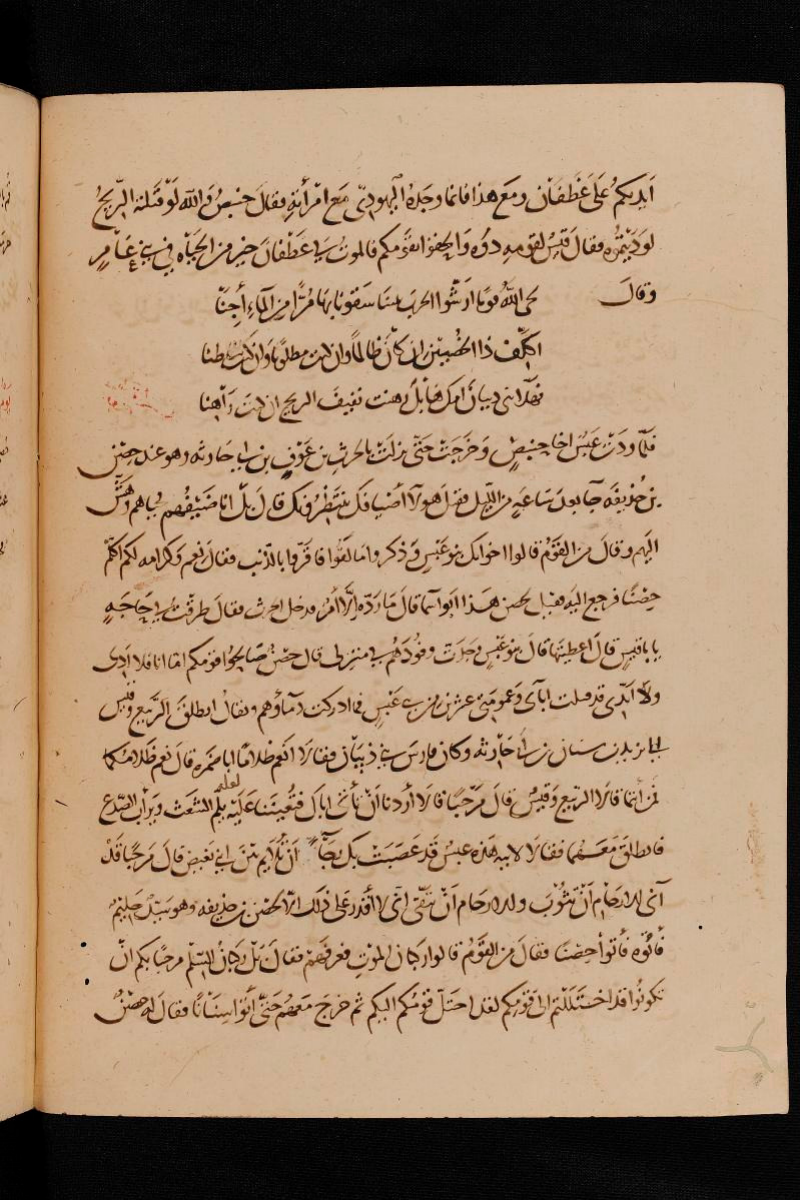 أيديكم على غطفان ومع هذا فانما وجده اليهودي مع امرأته فقال حنبص والله لو قتلته الريح
لوديتموه فقال قيس لقومه دوه والحقوا بقومكم فالموت في غطفان خير من الحياة في بني عامر
وقال
لحى الله قوما أرشوا الحرب بيننا سقونا بها مرا من الماء آجنا
اكلف ذا الخصيين ان كان ظالما وان كان مظلوما وان كان شاطنا
فهلا بني ذبيان امك هابل رهنت بفيف الريح ان كنت راهنا
فلما ودت عبس اخا حنبص وخرجت حتى نزلت بالحرث بن عوف بن ابي حارثه وهو عند حصن
بن حذيفة جآ بعد ساعة من الليل فقيل هولآ اضيافك ينتظرونك قال بل انا ضيفهم فحياهم وهش
اليهم وقال من القوم قالوا اخوانك بنو عبس وذكروا ما لقوا فاقروا بالذنب فقال نعم وكرامه لكم اكلم
حصنا فرجع اليه فقيل لحصن هذا ابو اسما قال ما رده إلا أمر فدخل الحرث فقال طرقت في حاجة
يا با قيس قال أعطيتها قال بنو عبس وجدت وفودهم في منزلي قال حصن صالحوا قومكم اما انا فلا ادى
ولا اتدى قد قتلت آبآى وعمومتى عشرين من بني عبس فما ادركت دمآؤهم ويقال انطلق الربيع وقيس
الى يزيد بن سنان بن ابي حارثه وكان فارس بني ذبيان فقالا انعم ظلاما ابا ضمره قال نعم ظلامكما
فمن أنتما قالا الربيع وقيس قال مرحبا قالا أردنا ان نأتى اباك فتعيننا عليه لعله يلم الشعث ويرأب الصدع
فانطلق معهما فقالا لابيه هذه عبس قد عصبت بك رجآ أن تلايم بين ابني بغيض قال مرحبا قد
آنى للارحام أن تثوب وللارحام أن تتقى إنى لا أقدر على ذلك الا بحصن بن حذيفه وهو سيد حليم
فأتوه فأتوا حصنا فقال من القوم قالوا ركبان الموت فعرفهم فقال بل ركبان السلم مرحبا بكم ان
تكونوا قد اختللتم الى قومكم لقد اختل قومكم اليكم ثم خرج معهم حتى أتوا سنانا فقال له حصن